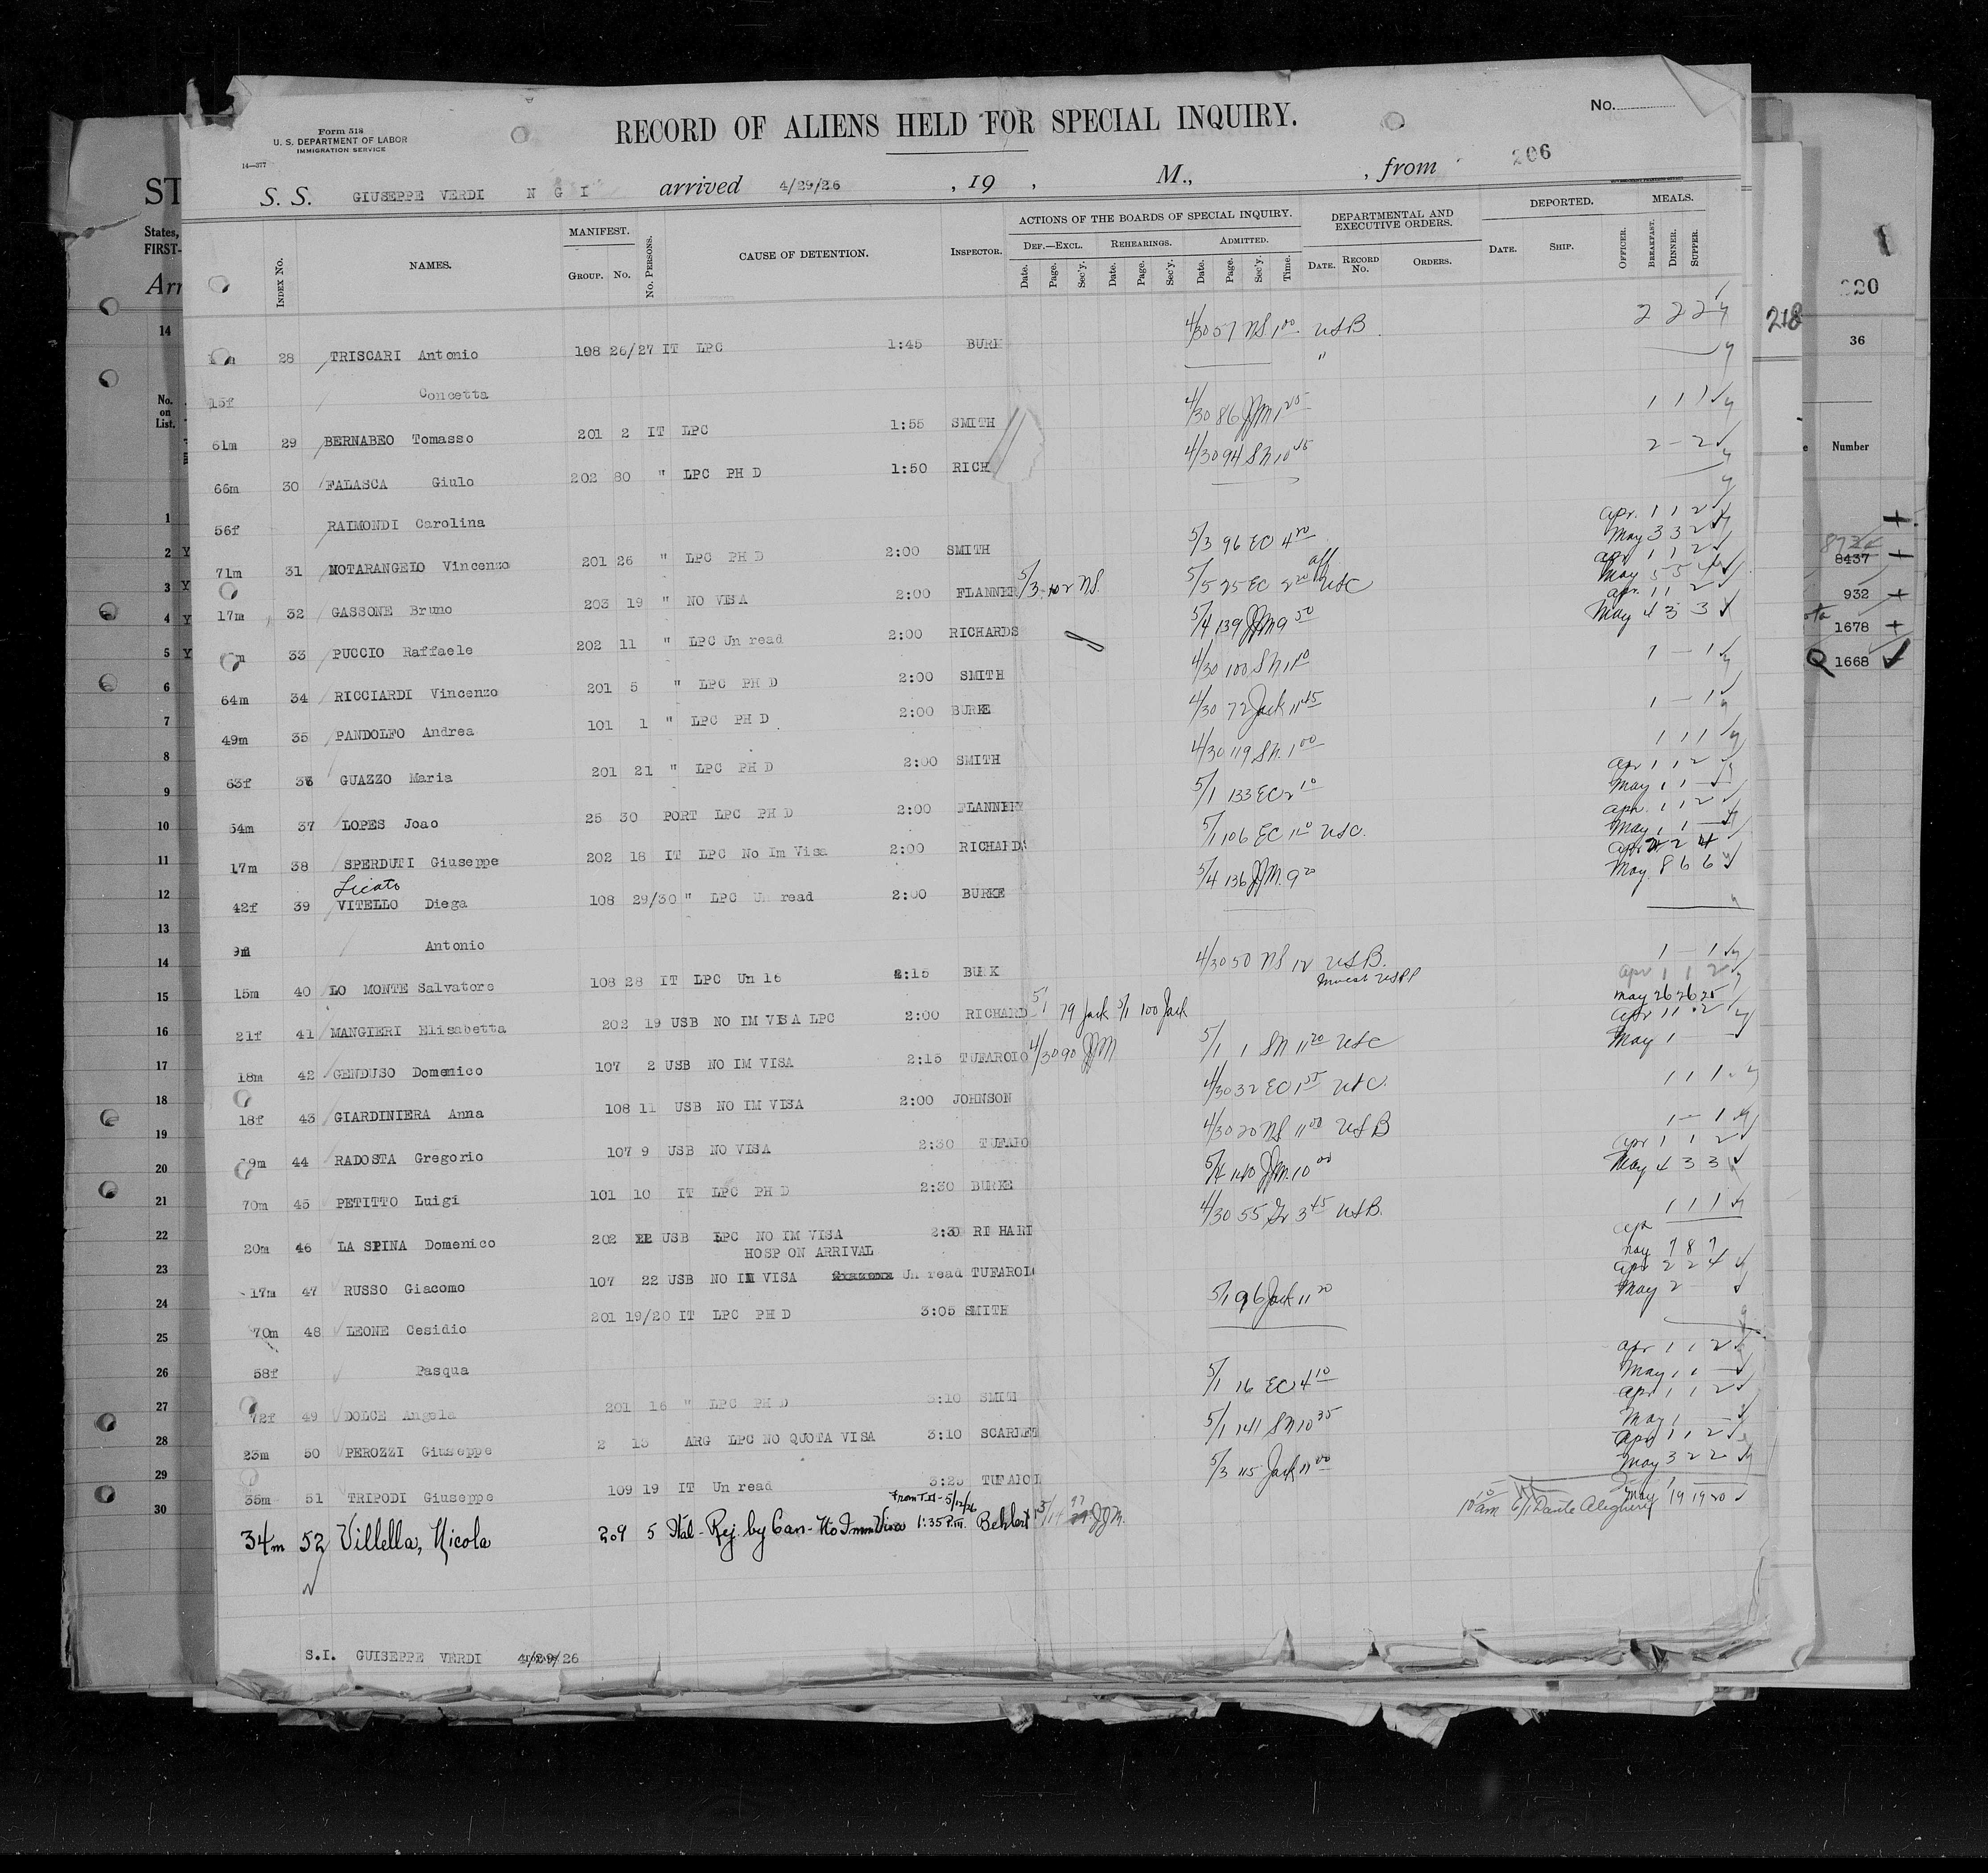 Form 518
U. S. DEPARTMENT OF LABOR
IMMIGRATION SERVICE
14—377
RECORD OF ALIENS HELD FOR SPECIAL INQUIRY.
No.
206
S. S. GIUSEPPE VERDI N G I arrived 4/29/26 , 19 , M., , from
INDEX No. NAMES. MANIFEST. GROUP. No. No. PERSONS. CAUSE OF DETENTION. INSPECTOR. ACTIONS OF THE BOARDS OF SPECIAL INQUIRY. DEF.—EXCL. Date. Page. Sec'y. REHEARINGS. Date. Page. Sec'y. ADMITTED. Date. Page. Sec'y. Time. DEPARTMENTAL AND EXECUTIVE ORDERS. DATE. RECORD No. ORDERS. DEPORTED. DATE. SHIP. OFFICER. MEALS. BREAKFAST. DINNER. SUPPER.
28 TRISCARI Antonio 108 26/27 IT LPC 1:45 BURK 4/30 57 NS 1 00 USB 2 2 2
15f Concetta "
61m 29 BERNABEO Tomasso 201 2 IT LPC 1:55 SMITH 4/30 86 JJM 1 1 1
66m 30 FALASCA Giulo 202 80 " LPC PH D 1:50 RICH 4/30 94 Sh 10 45 2 - 2
56f RAIMONDI Carolina
71m 31 NOTARANGELO Vincenzo 201 26 " LPC PH D 2:00 SMITH 5/3 96 EC 4 20 apr. 1 1 2 May 3 3 2
17m 32 GASSONE Bruno 203 19 " NO VISA 2:00 FLANNER 5/3 102 NS. 5/5 25 EC 2 20 USC apr 1 1 2 May 5 5
33 PUCCIO Raffaele 202 11 " LPC Un read 2:00 RICHARDS 5/4 139 JJM 9 50 apr. 1 1 2 May 4 3 3
64m 34 RICCIARDI Vincenzo 201 5 " LPC PH D 2:00 SMITH 4/30 100 Sh 1 — 1
49m 35 PANDOLFO Andrea 101 1 " LPC PH D 2:00 BURKE 4/30 72 Jack 11 45 1 — 1
63f 36 GUAZZO Maria 201 21 " LPC PH D 2:00 SMITH 4/30 119 Sh. 1 00 1 1 1
54m 37 LOPES Joao 25 30 PORT LPC PH D 2:00 FLANNERY 5/1 133 EC 2 10 apr 1 1 2 May 1 1 —
17m 38 SPERDUTI Giuseppe 202 18 IT LPC No Im Visa 2:00 RICHARDS 5/1 106 EC USC. apr. 1 1 2 May 1 1 —
Licato
42f 39 VITELLO Diega 108 29/30 " LPC Un read 2:00 BURKE 5/4 136 JJM. 9 20 apr 2 4 May. 8 6 6
Antonio
15m 40 LO MONTE Salvatore 108 28 IT LPC Un 16 2:15 BURK 4/30 50 NS 12 USB. 1 — 1
21f 41 MANGIERI Elisabetta 202 19 USB NO IM VISA LPC 2:00 RICHARD 5/1 79 Jack 5/1 100 Jack apr 1 1 2 may 26 26 25
18m 42 GENDUSO Domenico 107 2 USB NO IM VISA 2:15 TUFAROIO 4/30 90 JJM 5/1 1 Sh 11 20 USC apr 1 1 2 May 1
18f 43 GIARDINIERA Anna 108 11 USB NO IM VISA 2:00 JOHNSON 4/30 32 EC USC. 1 1 1
44 RADOSTA Gregorio 107 9 USB NO VISA 2:30 TUFAIO 4/30 20 NS 11 00 USB 1 — 1
70m 45 PETITTO Luigi 101 10 IT LPC PH D 2:30 BURKE 5/4 140 JJM. 10 00 apr 1 1 2 May 4 3 3
20m 46 LA SPINA Domenico 202 USB LPC NO IM VISA 2:30 RI HARI 4/30 55 3 45 USB. 1 1 1
HOSP ON ARRIVAL
17m 47 RUSSO Giacomo 107 22 USB NO IM VISA Un read TUFAROIO apr
70m 48 LEONE Cesidio 201 19/20 IT LPC PH D 3:05 SMITH 5/1 96 Jack 11 20 apr 2 2 4 May 2
58f Pasqua
72f 49 DOLCE Angela 201 16 " LPC PH D 3:10 SMIT 5/1 16 EC 4 10 apr 1 1 2 May 1 1 —
23m 50 PEROZZI Giuseppe 2 13 ARG LPC NO QUOTA VISA 3:10 SCARLET 5/1 141 Sh 10 35 apr 1 1 2 May 1 —
35m 51 TRIPODI Giuseppe 109 19 IT Un read 3:25 TUFAIOI 5/3 115 Jack 11 00 apr 1 1 2 May 3 2 2
From T.D - 5/12/26
34m 52 Villella, Nicola 209 5 Ital - Rej. by Can - No Imm Visa 1:35 P.M. Behlert 5/14 97 JJM. 10 am 6/1 Dante Alighieri may 19 19 20
S.I. GUISEPPE VERDI 4/29/26
ST
States,
FIRST-
Arr
14
No. on List.
1
2 Y
3 Y
4 Y
5 Y
6
7
8
9
10
11
12
13
14
15
16
17
18
19
20
21
22
23
24
25
26
27
28
29
30
218
220
36
Number
8437
932
1678
1668